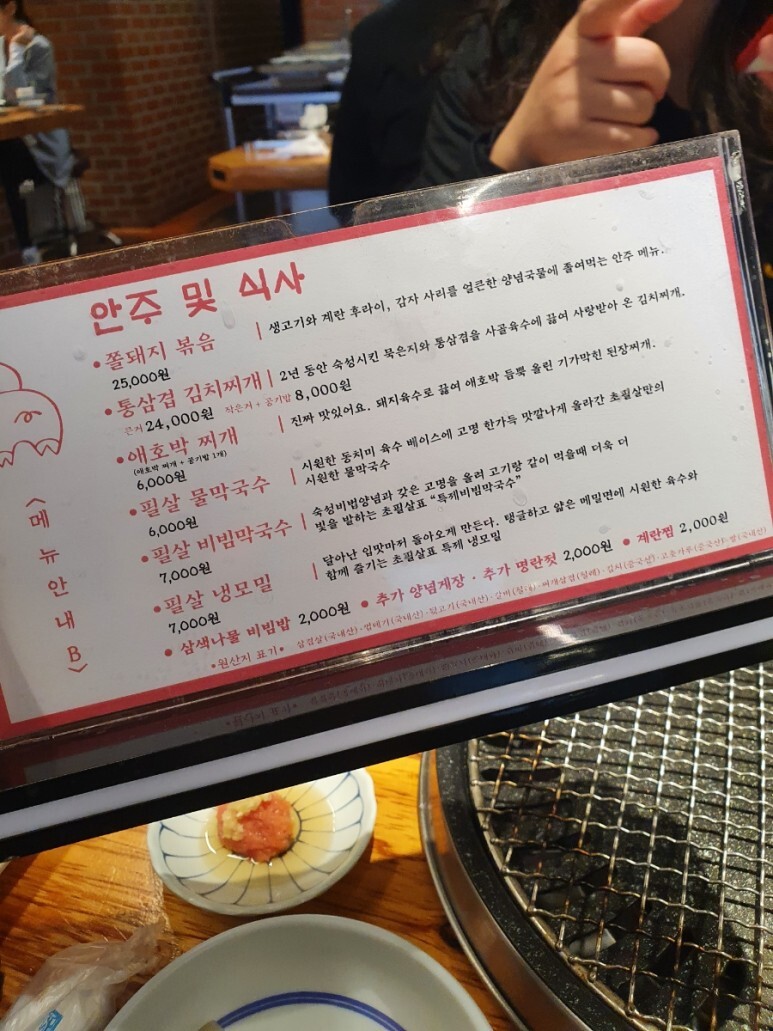 안주 및 식사
• 쫄돼지 볶음 | 생고기와 계란 후라이, 감자 사리를 얼큰한 양념국물에 졸여먹는 안주 메뉴.
25,000원
• 통삼겹 김치찌개 | 2년 동안 숙성시킨 묵은지와 통삼겹을 사골육수에 끓여 사랑받아 온 김치찌개.
큰거 24,000원 작은거 + 공기밥 8,000원
• 애호박 찌개 | 진짜 맛있어요. 돼지육수로 끓여 애호박 듬뿍 올린 기가막힌 된장찌개.
(애호박 찌개 + 공기밥 1개)
6,000원
• 필살 물막국수 | 시원한 동치미 육수 베이스에 고명 한가득 맛깔나게 올라간 초필살만의
시원한 물막국수
6,000원
• 필살 비빔막국수 | 숙성비법양념과 갖은 고명을 올려 고기랑 같이 먹을때 더욱 더
빛을 발하는 초필살표 "특제비빔막국수"
7,000원
• 필살 냉모밀 | 달아난 입맛마저 돌아오게 만든다. 탱글하고 얇은 메밀면에 시원한 육수와
함께 즐기는 초필살표 특제 냉모밀
7,000원
• 삼색나물 비빔밥 2,000원 • 추가 양념게장 · 추가 명란젓 2,000원 • 계란찜 2,000원
•원산지 표기• 삼겹살(국내산)·껍데기(국내산)·닭고기(국내산)·갈비(칠레)·찌개삼겹(칠레)·김치(중국산)·고춧가루(중국산)·쌀(국내산)
<메뉴안내B>